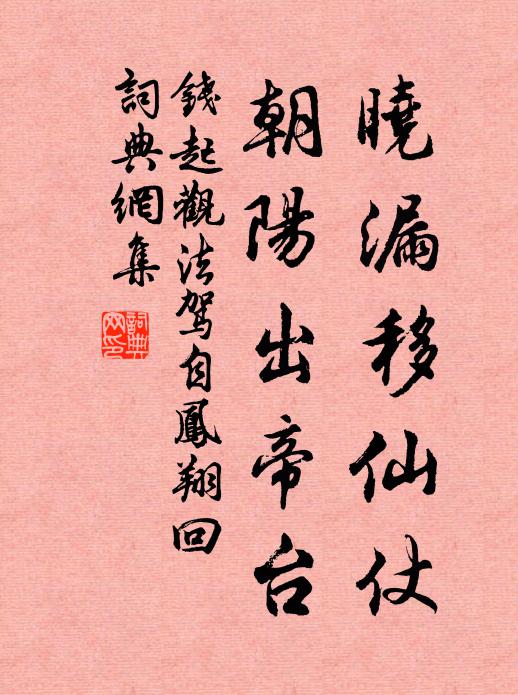 曉漏移仙仗
朝陽出帝台
錢起觀法駕自鳳翔回
詞典網集
詞典網印